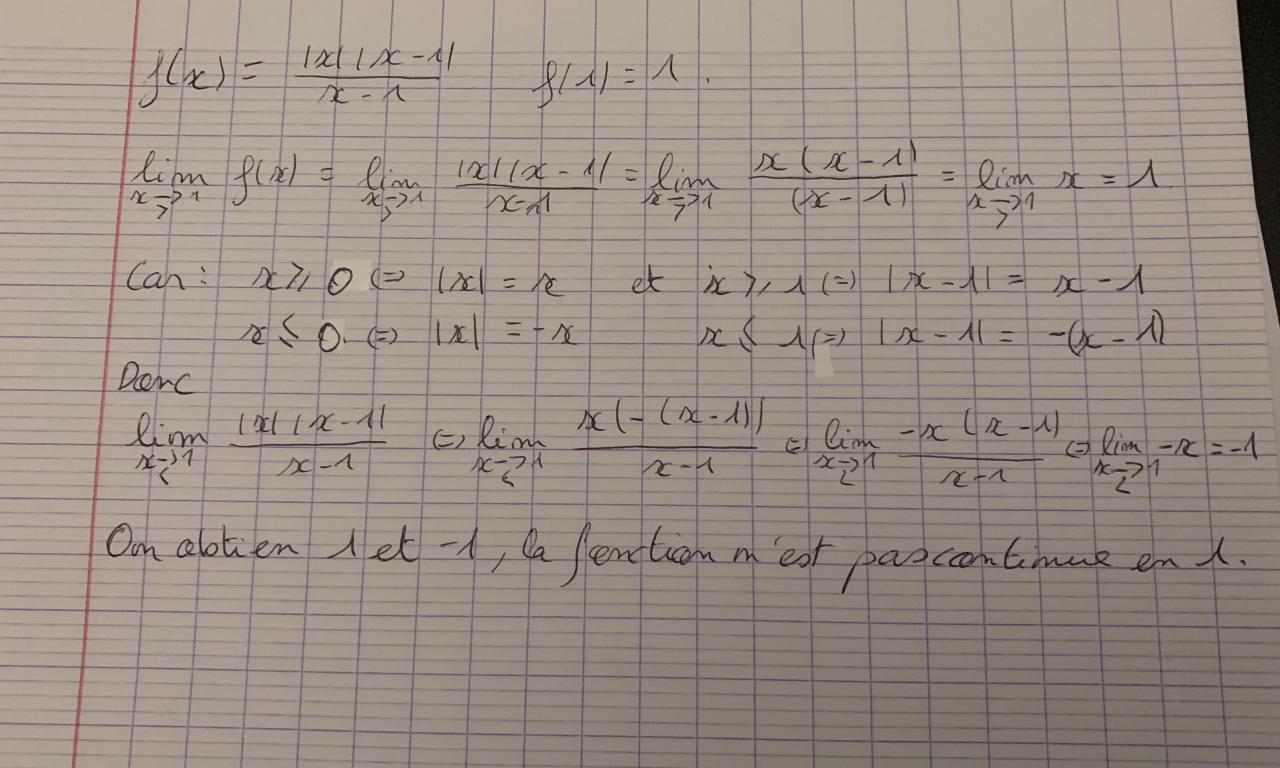 f(x) = |x| |x-1| / x-1    f(1) = 1.
lim x→1 > f(x) = lim x→1 > |x| |x-1| / x-1 = lim x→1 > x(x-1) / (x-1) = lim x→1 > x = 1
Car : x ⩾ 0 (=) |x| = x et x ⩾ 1 (=) |x-1| = x-1
x ≤ 0 (=) |x| = -x    x ≤ 1 (=) |x-1| = -(x-1)
Donc
lim x→1 < |x| |x-1| / x-1 (=) lim x→1 < x(-(x-1)) / x-1 (=) lim x→1 < -x(x-1) / x-1 (=) lim x→1 < -x = -1
On obtien 1 et -1, la fonction n'est pas continue en 1.